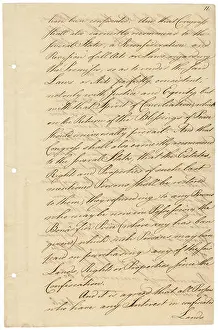 11
have been confiscated. And that Congress
shall also earnestly recommend to the
several States, a Reconsideration and
Revision of all Acts or Laws regarding
the Premises, so as to render the said
Laws or Acts perfectly consistent
not only with Justice and Equity, but
with that Spirit of Conciliation, which
on the Return of the Blessings of Peace
should universally prevail. And that
Congress shall also earnestly recommend
to the several States, that the Estates,
Rights and Properties of such last
mentioned Persons shall be restored
to them, they refunding to any Persons
who may be now in Possession, the
Bona fide Price (where any has been
given) which such Persons may have
paid on purchasing any of the said
Lands, Rights or Properties since the
Confiscation.
And it is agreed that all Persons
who have any Interest in confiscated
Lands